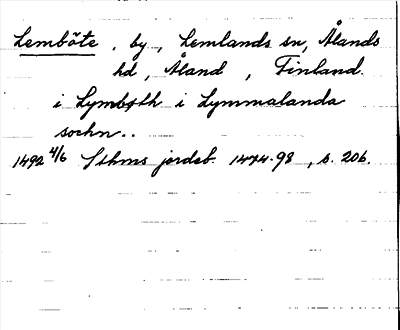 Lemböte, by, Lemlands sn, Ålands
hd, Åland, Finland.
i Lymbøth i Lymmalanda
sochn..
1492 4/6 Sthms jordeb. 1474-98, s. 206.